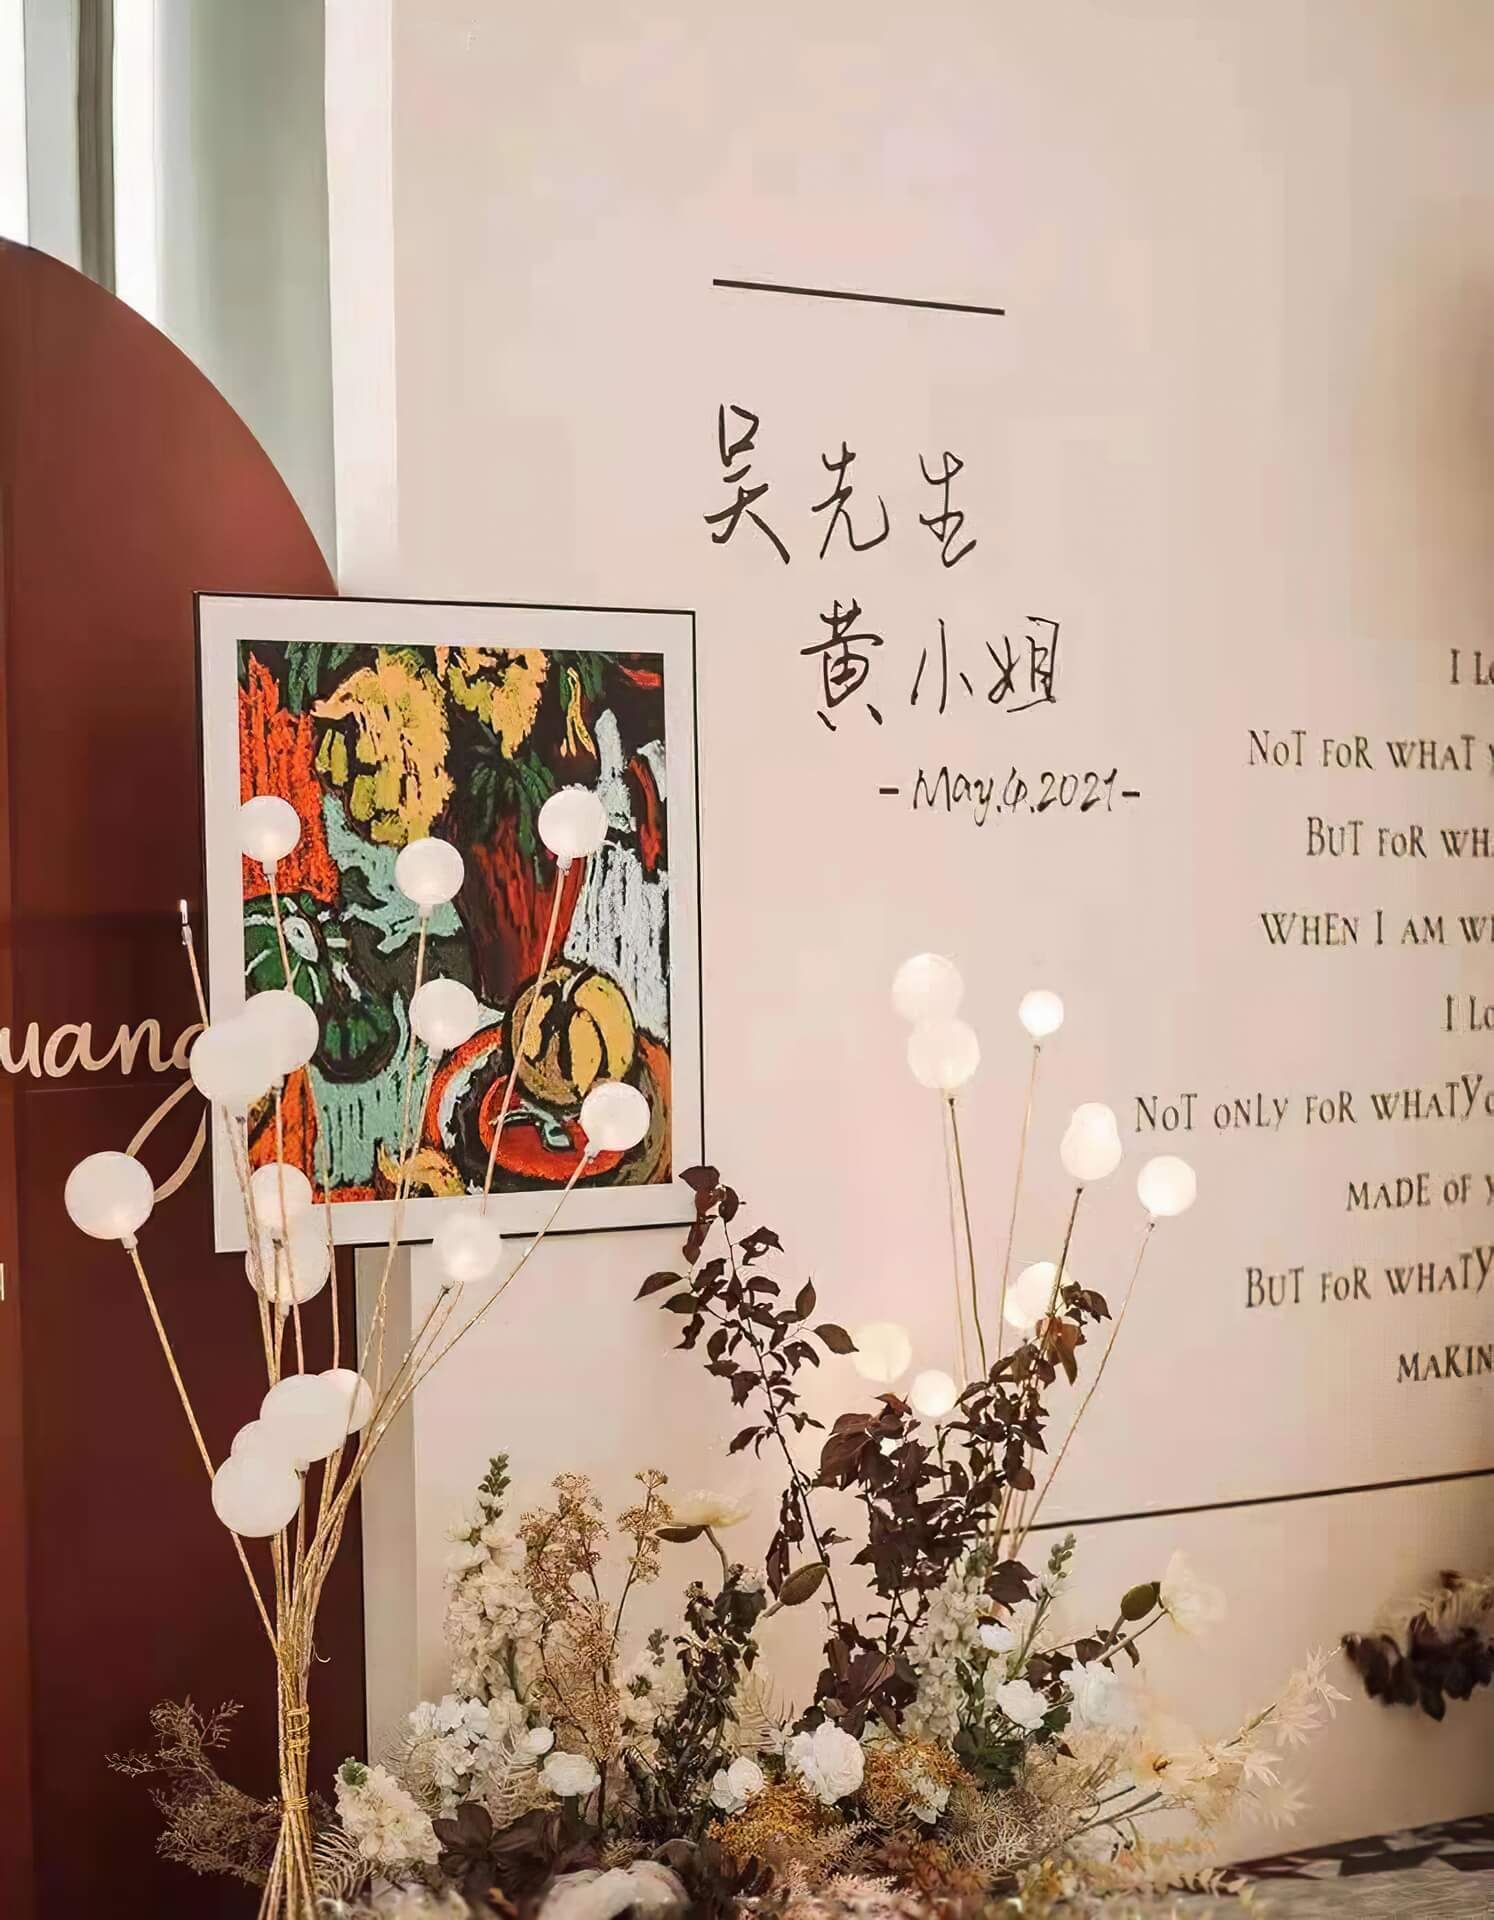 吴先生
黄小姐
-May.6.2021-
uang
I Lo
NOT FOR WHAT Y
BUT FOR WHA
WHEN I AM WI
I Lo
NOT ONLY FOR WHATYO
MADE OF Y
BUT FOR WHATY
MAKIN